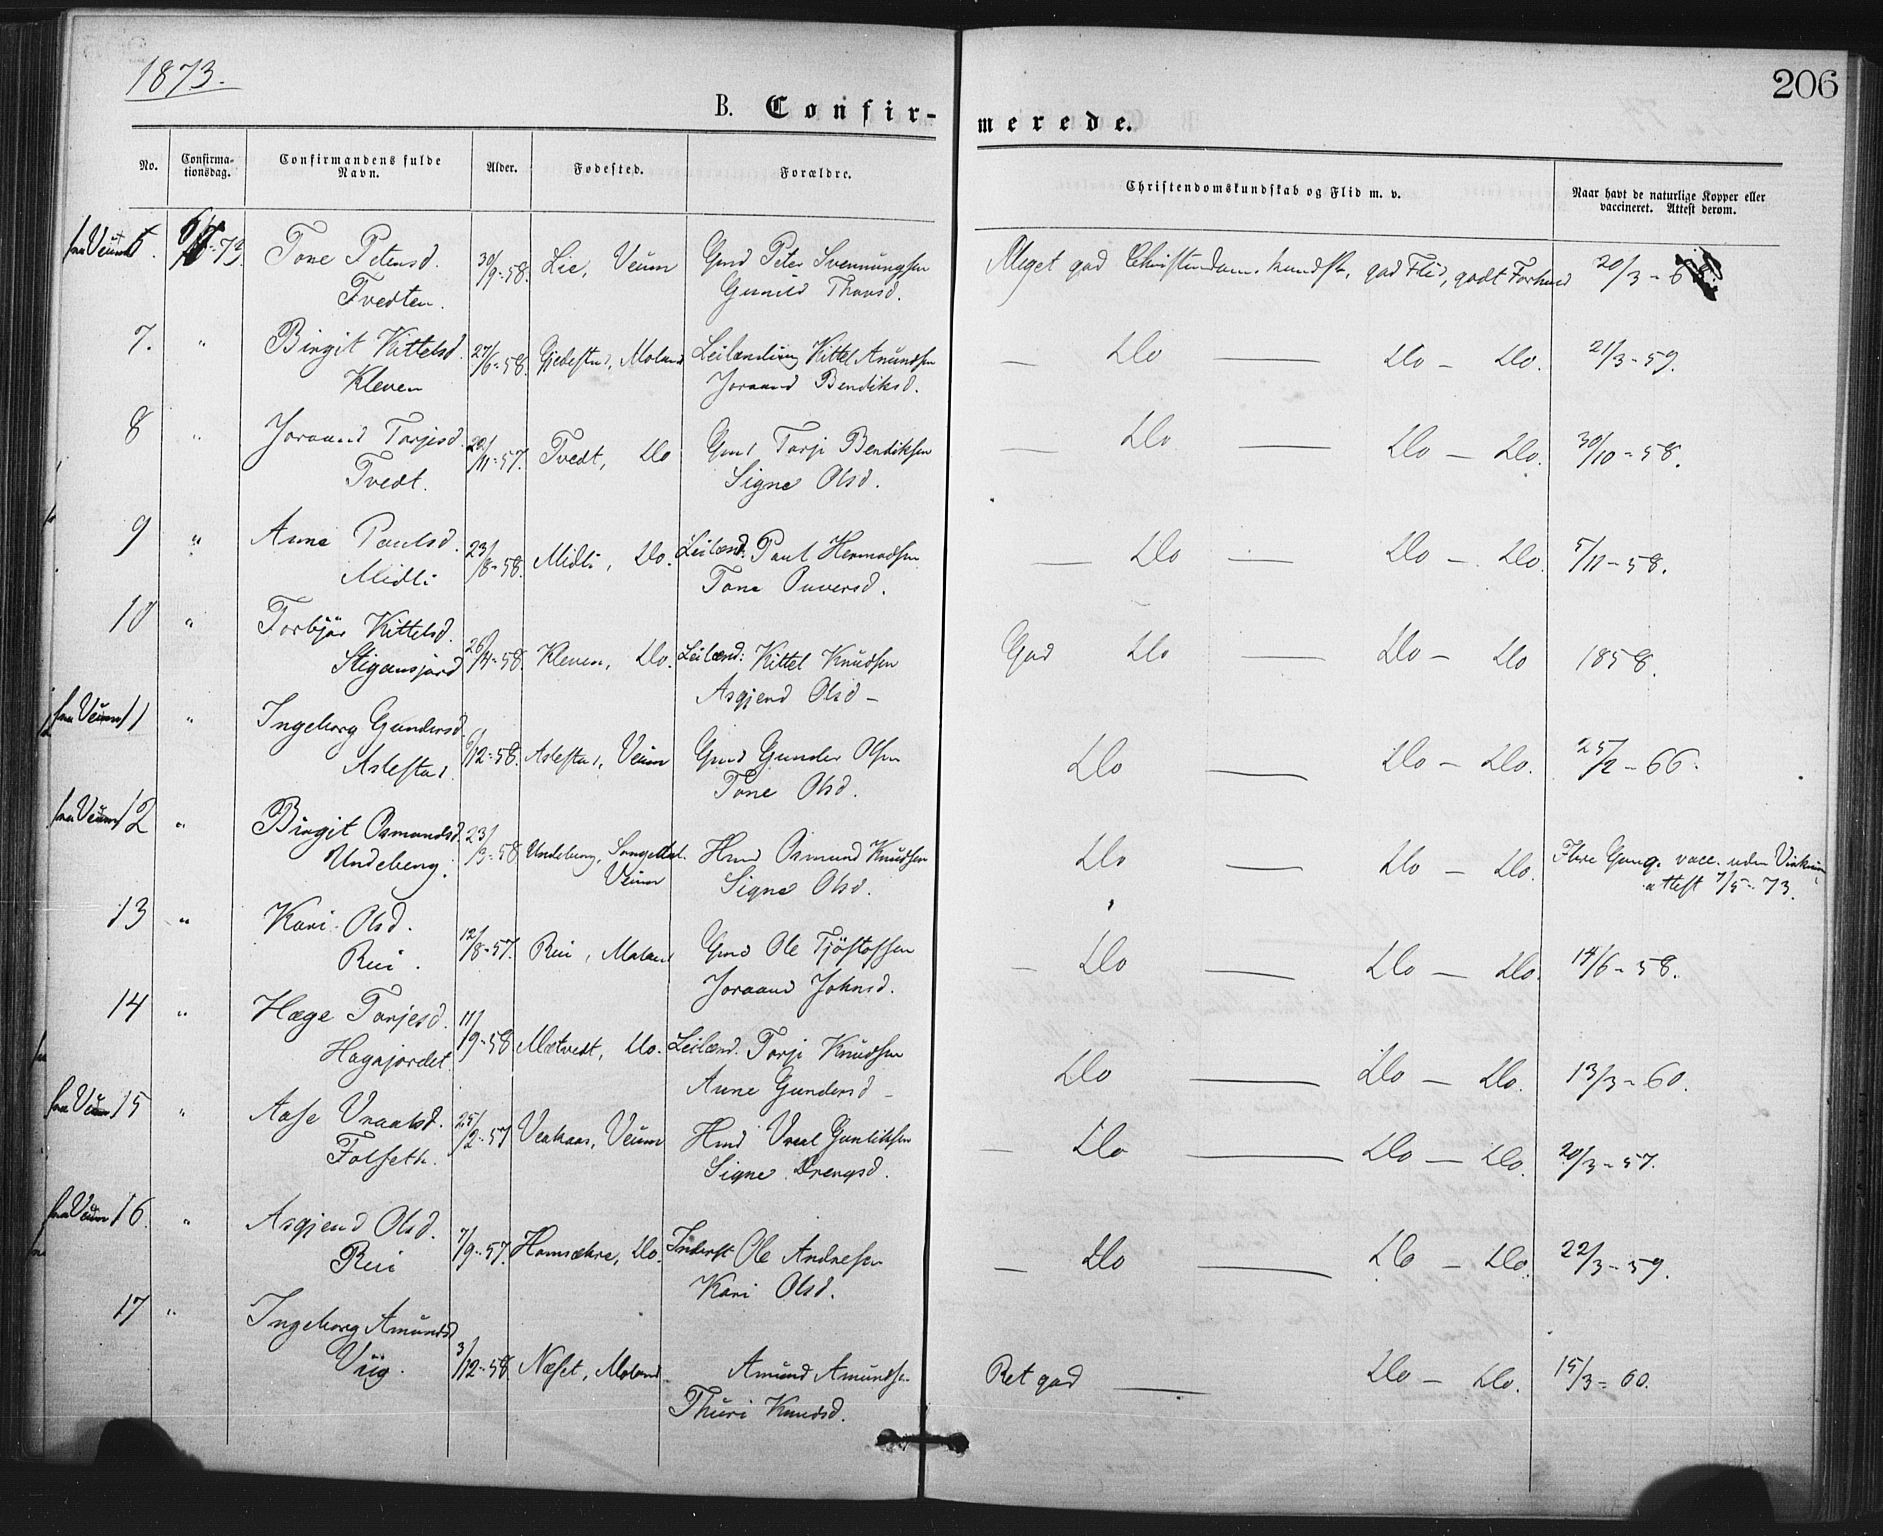 1873.
206
B. Confir-
merede.
No.
Confirma-
tionsdag.
Confirmandens fulde
Navn.
Alder.
Fødested.
Forældre.
Christendomskundskab og Flid m. v.
Naar havt de naturlige Kopper eller
vaccineret. Attest derom.
fra Veum 6. Tone Petersd. 30/9-58. Lie, Veum Gmd Peter Svennungsen Meget god Christendomskundsk, god Flid, godt Forhold 20/3 -
Tvedten. Gunild Thorsd.
7. " Birgit Kittelsd. 27/6-58. Gjelestad, Moland Leilænding Kittel Amundsen — Do — Do — Do. 21/3-59.
Kleven Joraand Bendiksd.
8 " Joraand Torjisd. 29/11-57. Tvedt, Do Gmd Torje Bendiksen — Do — Do — Do. 30/10-58.
Tvedt. Signe Olsd.
9 " Anne Paulsd. 23/8-58. Midli, Do. Leilænd. Paul Hermodsen — Do — Do — Do. 5/11-58.
Midli Tone Ouversd.
10 " Torbjör Kittelsd. 26/4-58. Kleven, Do. Leilænd: Kittel Knudsen God Do — Do — Do 1858.
Stigansjord Asgjerd Olsd —
fra Veum 11 " Ingeborg Gundersd. 6/12-58. Aslestad, Veum Gmd Gunder Olsen Do — Do — Do. 25/2-66.
Aslestad. Tone Olsd.
fra Veum 12 " Birgit Osmundsd. 23/3-58 Undeberg, Songedal. Hmd Osmund Knudsen Do — Do — Do. Flere Gang. vacc. uden Virkning
Undeberg. Veum Signe Olsd. attest 7/5-73.
13 " Kari Olsd. 12/8-57. Rui, Moland Gmd Ole Tjöstofsen — Do — Do — Do. 14/6-58.
Rui. Joraand Johnsd.
14 " Hæge Torjesd. 11/9-58 Mætvedt, Do. Leilænd. Torje Knudsen Do — Do — Do. 13/3-60.
Hagajordet. Anne Gundersd —
fra Veum 15 " Aase Vraalsd. 25/2-57 Veakaas, Veum Hmd Vraal Gunliksen — Do — Do — Do. 20/3-57.
Folseth. Signe Drengsd.
fra Veum 16. " Asgjerd Olsd. 7/9-57. Homsækre, Do. Inderst Ole Andresen — Do — Do — Do. 22/3-59.
Rui Kari Olsd.
17 " Ingeborg Amundsd 3/12-58 Næset, Moland. Amund Amundsen Ret god — Do — Do. 15/3-60.
Viig. Thuri Knudsd.